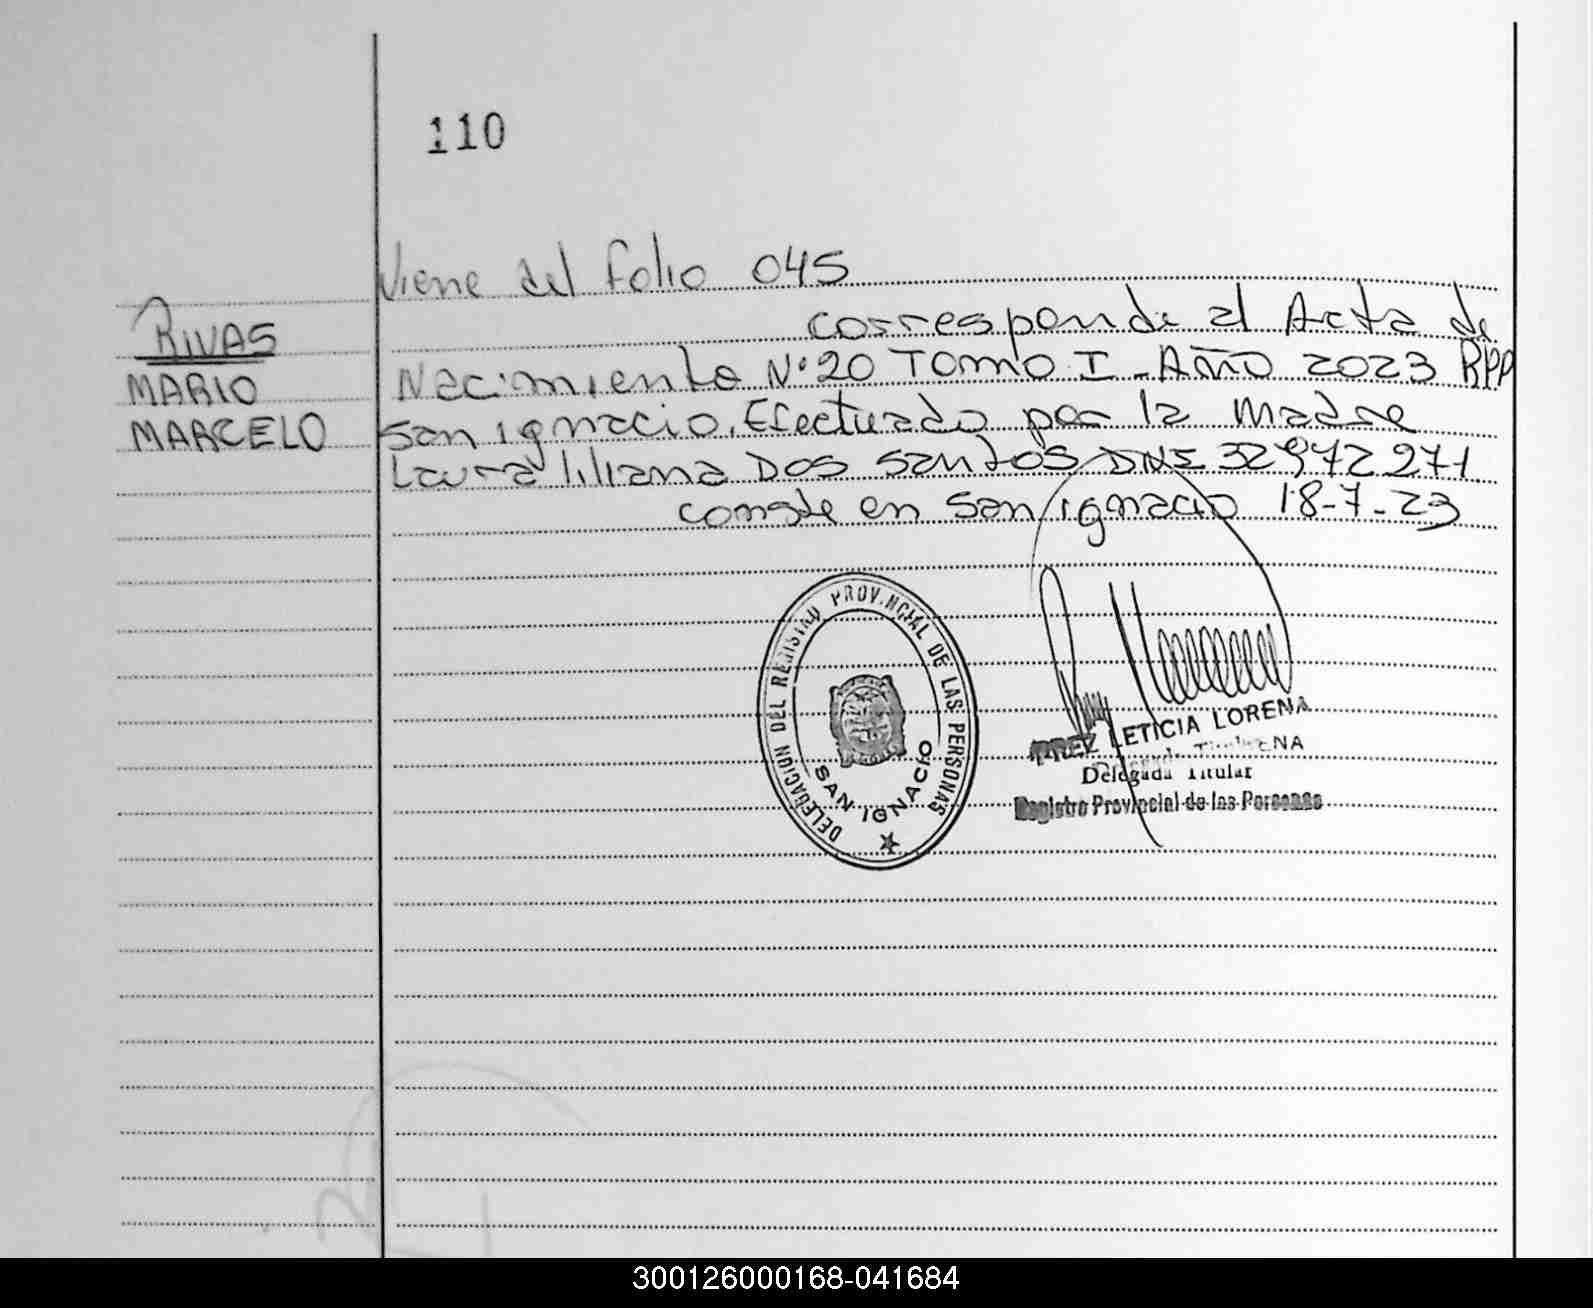 110
Viene del folio 045
RIVAS
corresponde al Acta de
MARIO
Nacimiento N°20 Tomo I - Año 2023 RPP
MARCELO
San ignacio. Efectuado por la Madre
Laura liliana Dos Santos DNI 32972271
conste en San ignacio 18-7-23
DELEGACION DEL REGISTRO PROVINCIAL DE LAS PERSONAS
SAN IGNACIO
LETICIA LORENA
Delegada Titular
Registro Provincial de las Personas
300126000168-041684